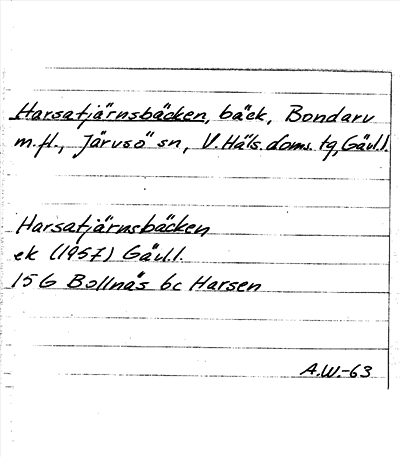 Harsatjärnsbäcken, bäck, Bondarv
m.fl., Järvsö sn, V. Häls. doms. tg, Gävl.l.
Harsatjärnsbäcken
ek (1957) Gävl.l.
15G Bollnäs 6c Harsen
A.W.-63